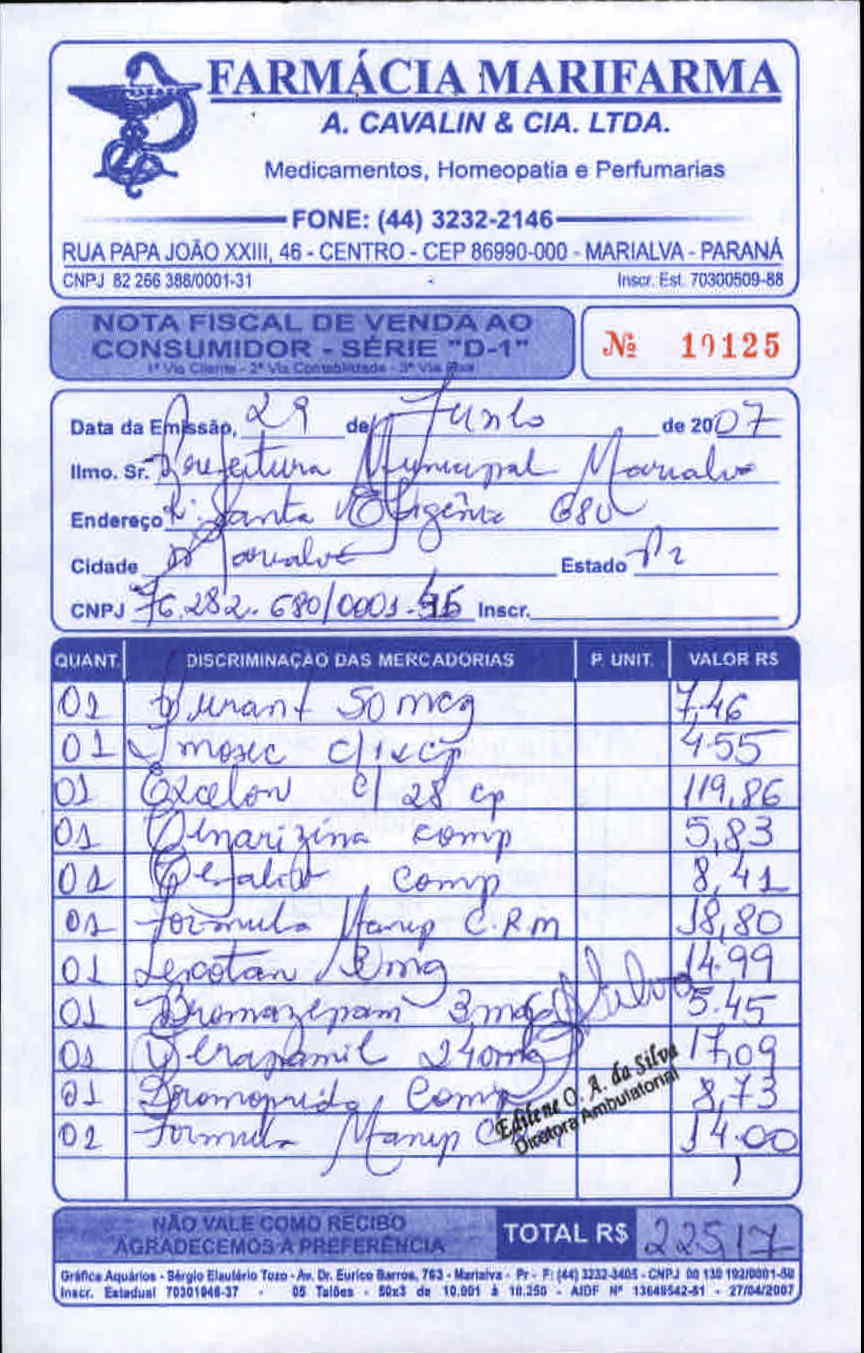 FARMÁCIA MARIFARMA
A. CAVALIN & CIA. LTDA.
Medicamentos, Homeopatia e Perfumarias
FONE: (44) 3232-2146
RUA PAPA JOÃO XXIII, 46 - CENTRO - CEP 86990-000 - MARIALVA - PARANÁ
CNPJ 82 266 386/0001-31 Inscr. Est. 70300509-88
NOTA FISCAL DE VENDA AO
CONSUMIDOR - SÉRIE "D-1"
Nº 10125
1ª Via Cliente - 2ª Via Contabilidade - 3ª Via Fixa
Data da Emissão, 29 de Junho de 2007
Ilmo. Sr. Prefeitura Municipal Marialva
Endereço R. Santa Efigênia 680
Cidade Marialva Estado Pr
CNPJ 76.282.680/0001-45 Inscr.
QUANT. DISCRIMINAÇÃO DAS MERCADORIAS P. UNIT. VALOR R$
01 50 mcg 7,46
01 Imosec c/12 cp 4.55
01 Exelon c/ 28 cp 119,86
01 comp 5,83
01 comp 8,41
01 Formula Manip C.R.M 18,80
01 Lexotan 3mg 14.99
01 Bromazepam 3mg 5.45
01 Verapamil 240mg 17,09
01 Bromoprida Comp 8,73
01 Formula Manip 14.00
Edilene O. A. da Silva
Diretora Ambulatorial
NÃO VALE COMO RECIBO
AGRADECEMOS A PREFERÊNCIA
TOTAL R$ 225,17
Gráfica Aquários - Sérgio Elautério Tozo - Av. Dr. Eurico Barros, 763 - Marialva - Pr - F: (44) 3232-3405 - CNPJ 00 130 192/0001-50
Inscr. Estadual 70301946-37 - 05 Talões - 50x3 de 10.001 à 10.250 - AIDF Nº 13649542-61 - 27/04/2007